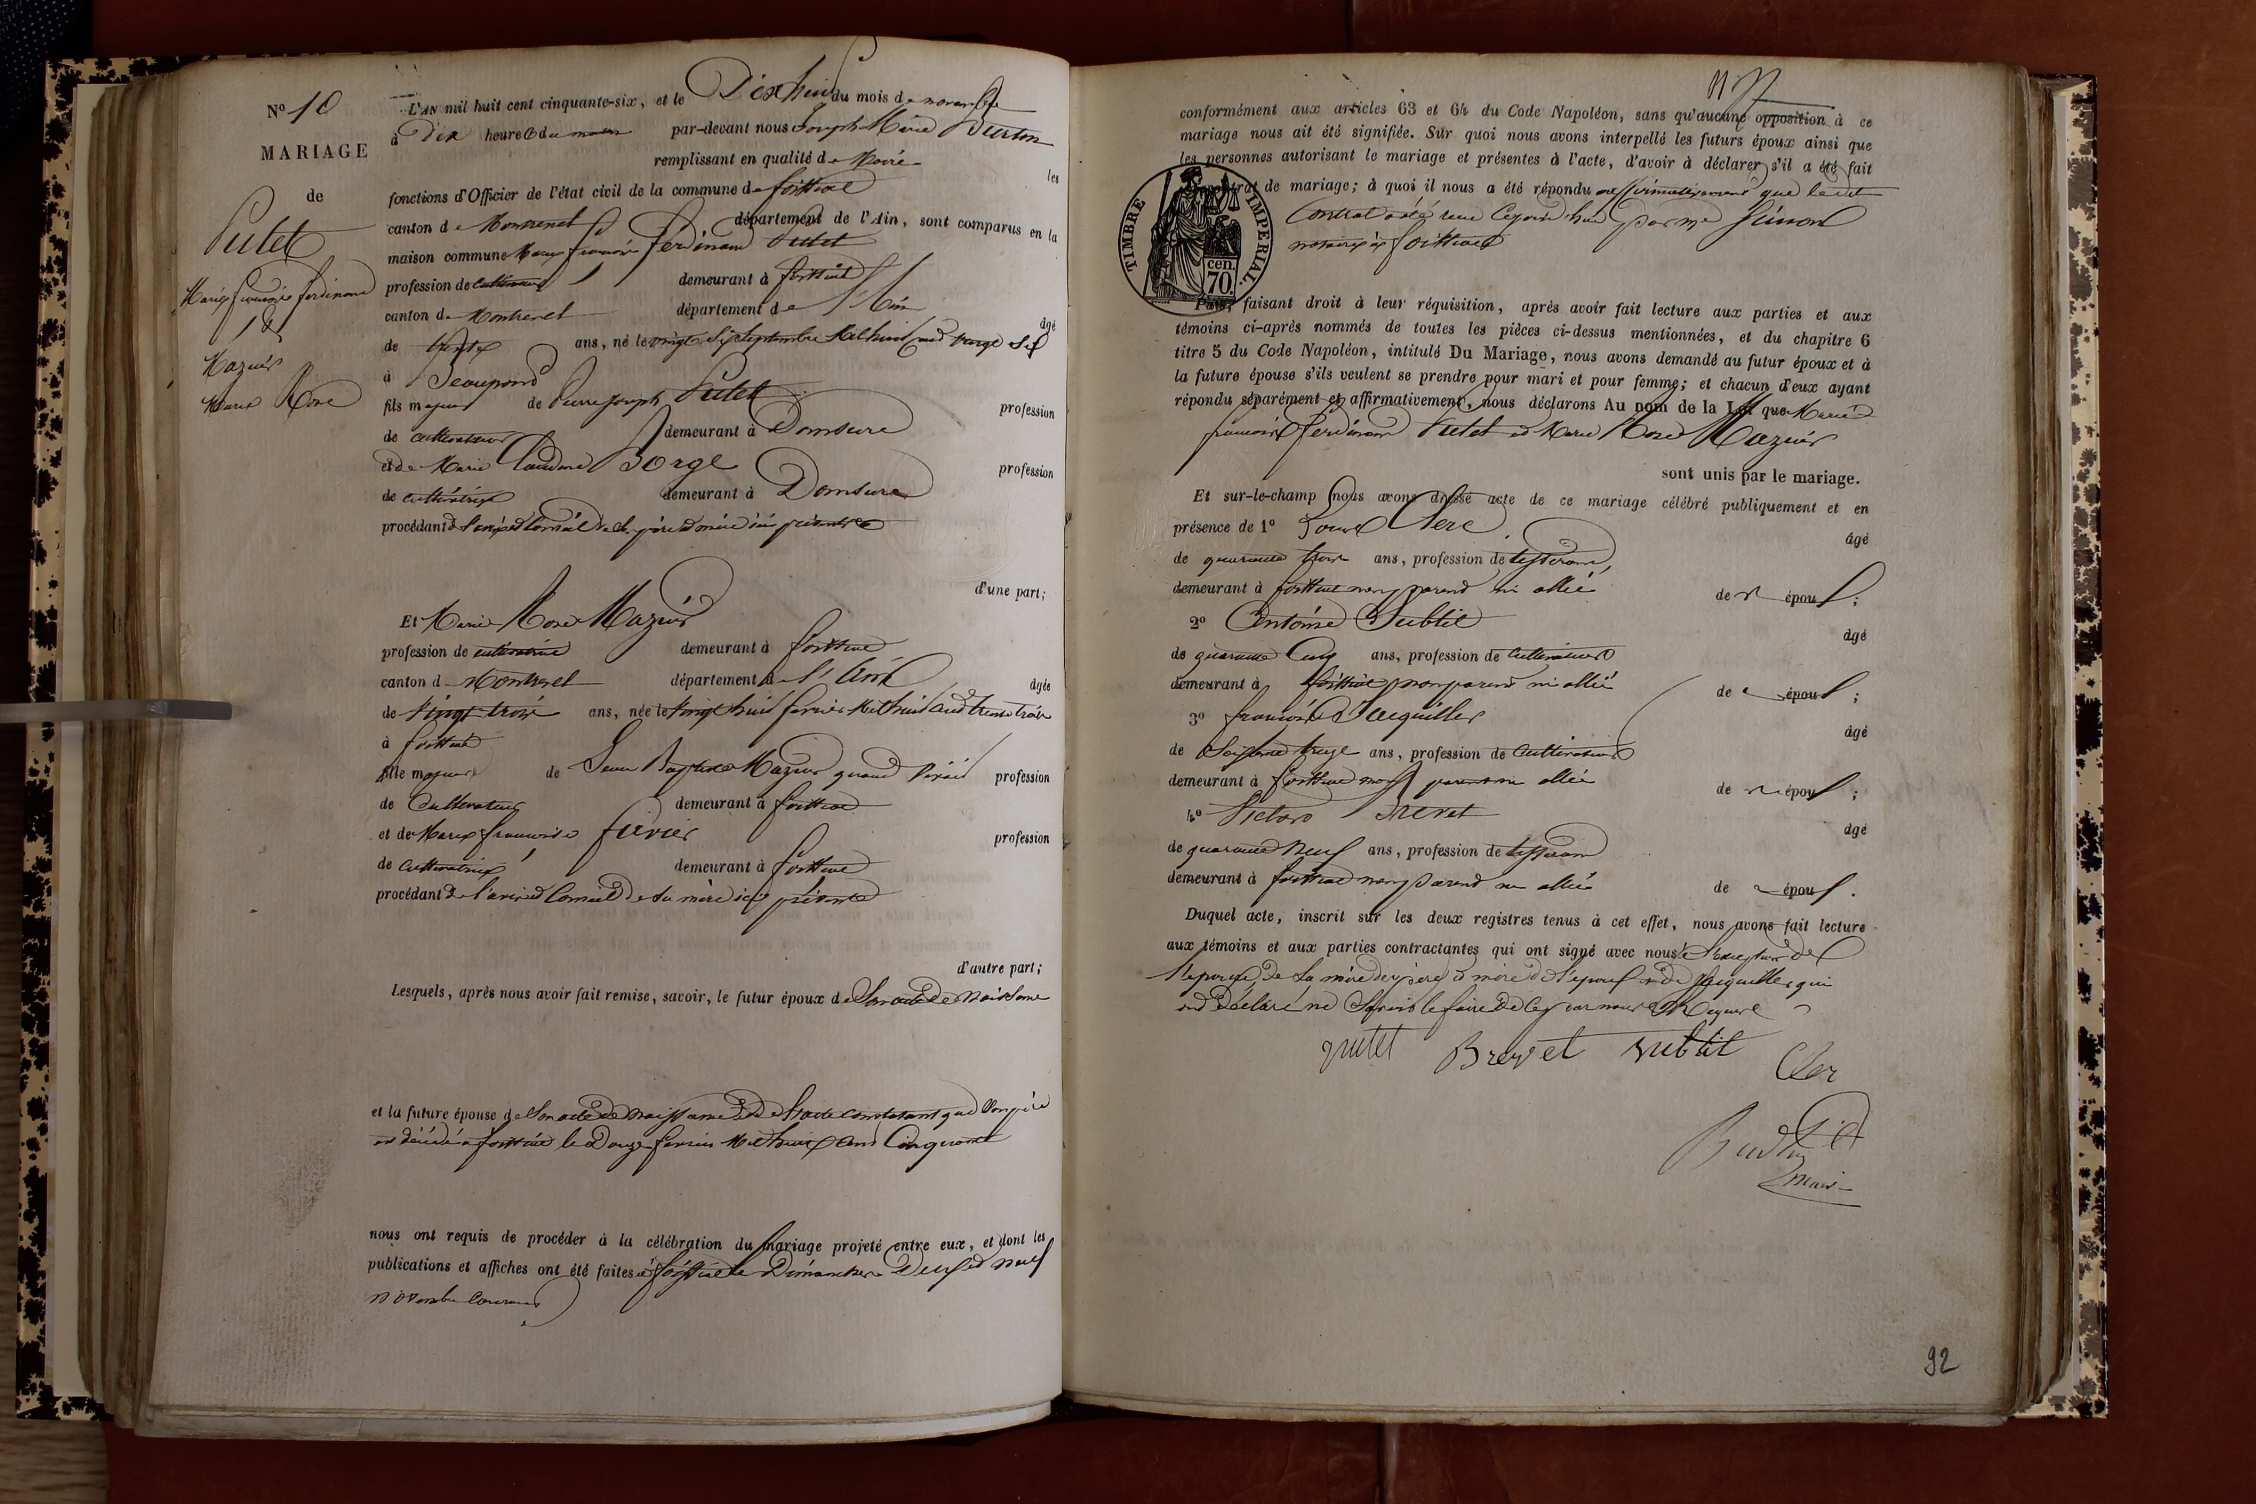 N° 10
MARIAGE
de
Putet
Marie françois ferdinand
&
Mazuir
Marie Rose
L'AN mil huit cent cinquante-six, et le Dix huit du mois de novembre
à Dix heure du matin par-devant nous Joseph Marie
remplissant en qualité de Maire les
fonctions d'Officier de l'état civil de la commune de foissiat
canton de Montrevel département de l'Ain, sont comparus en la
maison commune Marie françois ferdinand Putet
profession de cultivateur demeurant à foissiat
canton de Montrevel département de l'Ain
âgé
de trente ans, né le vingt Six Septembre Mil huit cent vingt Six
à Beaupont
fils majeur de Pierre joseph Putet profession
de cultivateur demeurant à Domsure
et de Marie Claudine Borge profession
de cultivatrice demeurant à Domsure
procédant de l'avis et Conseil de ses père et mère ici présents
d'une part;
Et Marie Rose Mazuir
profession de cultivatrice demeurant à foissiat
canton de Montrevel département de l'Ain âgée
de Vingt trois ans, née le Vingt huit fevrier Mil huit Cent trente trois
à foissiat
fille majeure de Jean Baptiste Mazuir quand vivait profession
de Cultivateur demeurant à foissiat
et de Marie françoise fevrier profession
de cultivatrice demeurant à foissiat
procédant de l'avis et Conseil de sa mère ici présente
d'autre part;
Lesquels, après nous avoir fait remise, savoir, le futur époux de Son acte de Naissance
et la future épouse de Son acte de naissance et de l'acte constatant que Son père
est décédé à foissiat le Douze fevrier Mil huit Cent Cinquante
nous ont requis de procéder à la célébration du mariage projeté entre eux, et dont les
publications et affiches ont été faites à foissiat le Dimanche Deux et neuf
novembre Courant
conformément aux articles 63 et 64 du Code Napoléon, sans qu'aucune opposition à ce
mariage nous ait été signifiée. Sur quoi nous avons interpellé les futurs époux ainsi que
les personnes autorisant le mariage et présentes à l'acte, d'avoir à déclarer s'il a été fait
contrat de mariage; à quoi il nous a été répondu affirmativement que ledit
Contrat a été reçu Cejourd'hui par me
notaire à foissiat
TIMBRE IMPERIAL.
cen.
70.
Puis, faisant droit à leur réquisition, après avoir fait lecture aux parties et aux
témoins ci-après nommés de toutes les pièces ci-dessus mentionnées, et du chapitre 6
titre 5 du Code Napoléon, intitulé Du Mariage, nous avons demandé au futur époux et à
la future épouse s'ils veulent se prendre pour mari et pour femme; et chacun d'eux ayant
répondu séparément et affirmativement, nous déclarons Au nom de la Loi que Marie
françois ferdinand Putet et Marie Rose Mazuir
sont unis par le mariage.
Et sur-le-champ nous avons dressé acte de ce mariage célébré publiquement et en
présence de 1° Clerc
âgé
de quarante trois ans, profession de tisserand
demeurant à foissiat non parent ni allié de époux;
2° Antoine Subtil
âgé
de quarante Cinq ans, profession de Cultivateur
demeurant à foissiat non parent ni allié de époux;
3° françois Jacquiller
âgé
de Soixante treize ans, profession de Cultivateur
demeurant à foissiat non parent ni allié de époux;
4° Victor Brevet
âgé
de quarante Neuf ans, profession de tisserand
demeurant à foissiat non parent ni allié de époux.
Duquel acte, inscrit sur les deux registres tenus à cet effet, nous avons fait lecture
aux témoins et aux parties contractantes qui ont signé avec nous à l'exception de
l'épouse, de sa mère des père et mère de l'époux et de Jacquiller qui
ont Déclaré ne Savoir le faire de ce par nous Requis
putet Brevet subtil
Cler
Maire
92